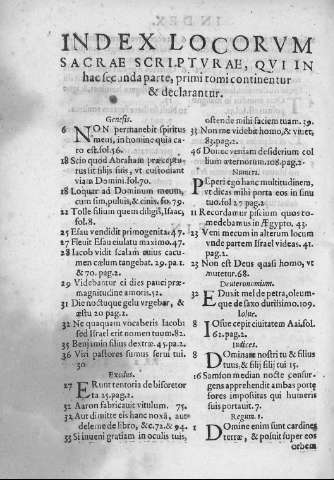 INDEX LOCORVM
SACRAE SCRIPTVRAE, QVI IN
hac secunda parte, primi tomi continentur
& declarantur.
Genesis.
6 NON permanebit spiritus
meus, in homine quia ca-
ro est. fol. 56.
18 Scio quod Abraham præceptu-
rus sit filijs suis, vt custodiant
viam Domini. fol. 70.
18 Loquar ad Dominum meum,
cum sim, puluis, & cinis. fo. 79.
22 Tolle filium quem diligis, Isaac,
fol. 8.
25 Esau vendidit primogenita. 47.
27 Fleuit Esau eiulatu maximo. 47.
28 Iacob vidit scalam cuius cacu-
men cœlum tangebat. 29. pa. 1.
& 70. pag. 2.
29 Videbantur ei dies pauci præ-
magnitudine amoris. 52.
31 Die noctuque gelu vrgebar, &
æstu 20 pag. 2.
32 Ne quaquam vocaberis Iacob
sed Israel erit nomen tuum. 82.
35 Benjimin filius dextræ. 45. pa. 2.
36 Viri pastores sumus serui tui.
30.
Exodus.
27 ERunt tentoria de bis oretor
ta 25. pag. 2.
32 Aaron fabricauit vitulum. 75.
32 Aut dimitte eis hanc noxā, aut
dele me de libro, &c. 72. & 94.
33 Si inueni gratiam in oculis tuis,
ostende mihi faciem tuam. 39.
33 Non me videbit homo, & viuet,
83. pag. 2.
49 Donec veniat desiderium col
lium æternorum. 108. pag. 2.
Numeri.
Peperi ego hanc multitudinem,
vt dicas mihi porta eos in sinu
tuo. fol 27 pag. 2.
11 Recordamur piscium quos co-
medebamus in Ægypto. 43.
23 Veni mecum in alterum locum
vnde partem Israel videas. 41.
pag. 2.
23 Non est Deus quasi homo, vt
mutetur. 68.
Deuteronomium.
32 EDuxit mel de petra, oleum-
que de saxo durissimo. 109.
Iosue.
8 IOsue cepit ciuitatem Aai. fol.
62. pag. 2.
Iudices.
8 DOminare nostri tu & filius
tuus, & filij filij tui 15.
16 Samson media nocte consur-
gens apprehendit ambas portę
fores impositas qui humeris
suis portauit. 7.
Regum. 1.
1 DOmine enim sunt cardines
terræ, & posuit super eos
orbem